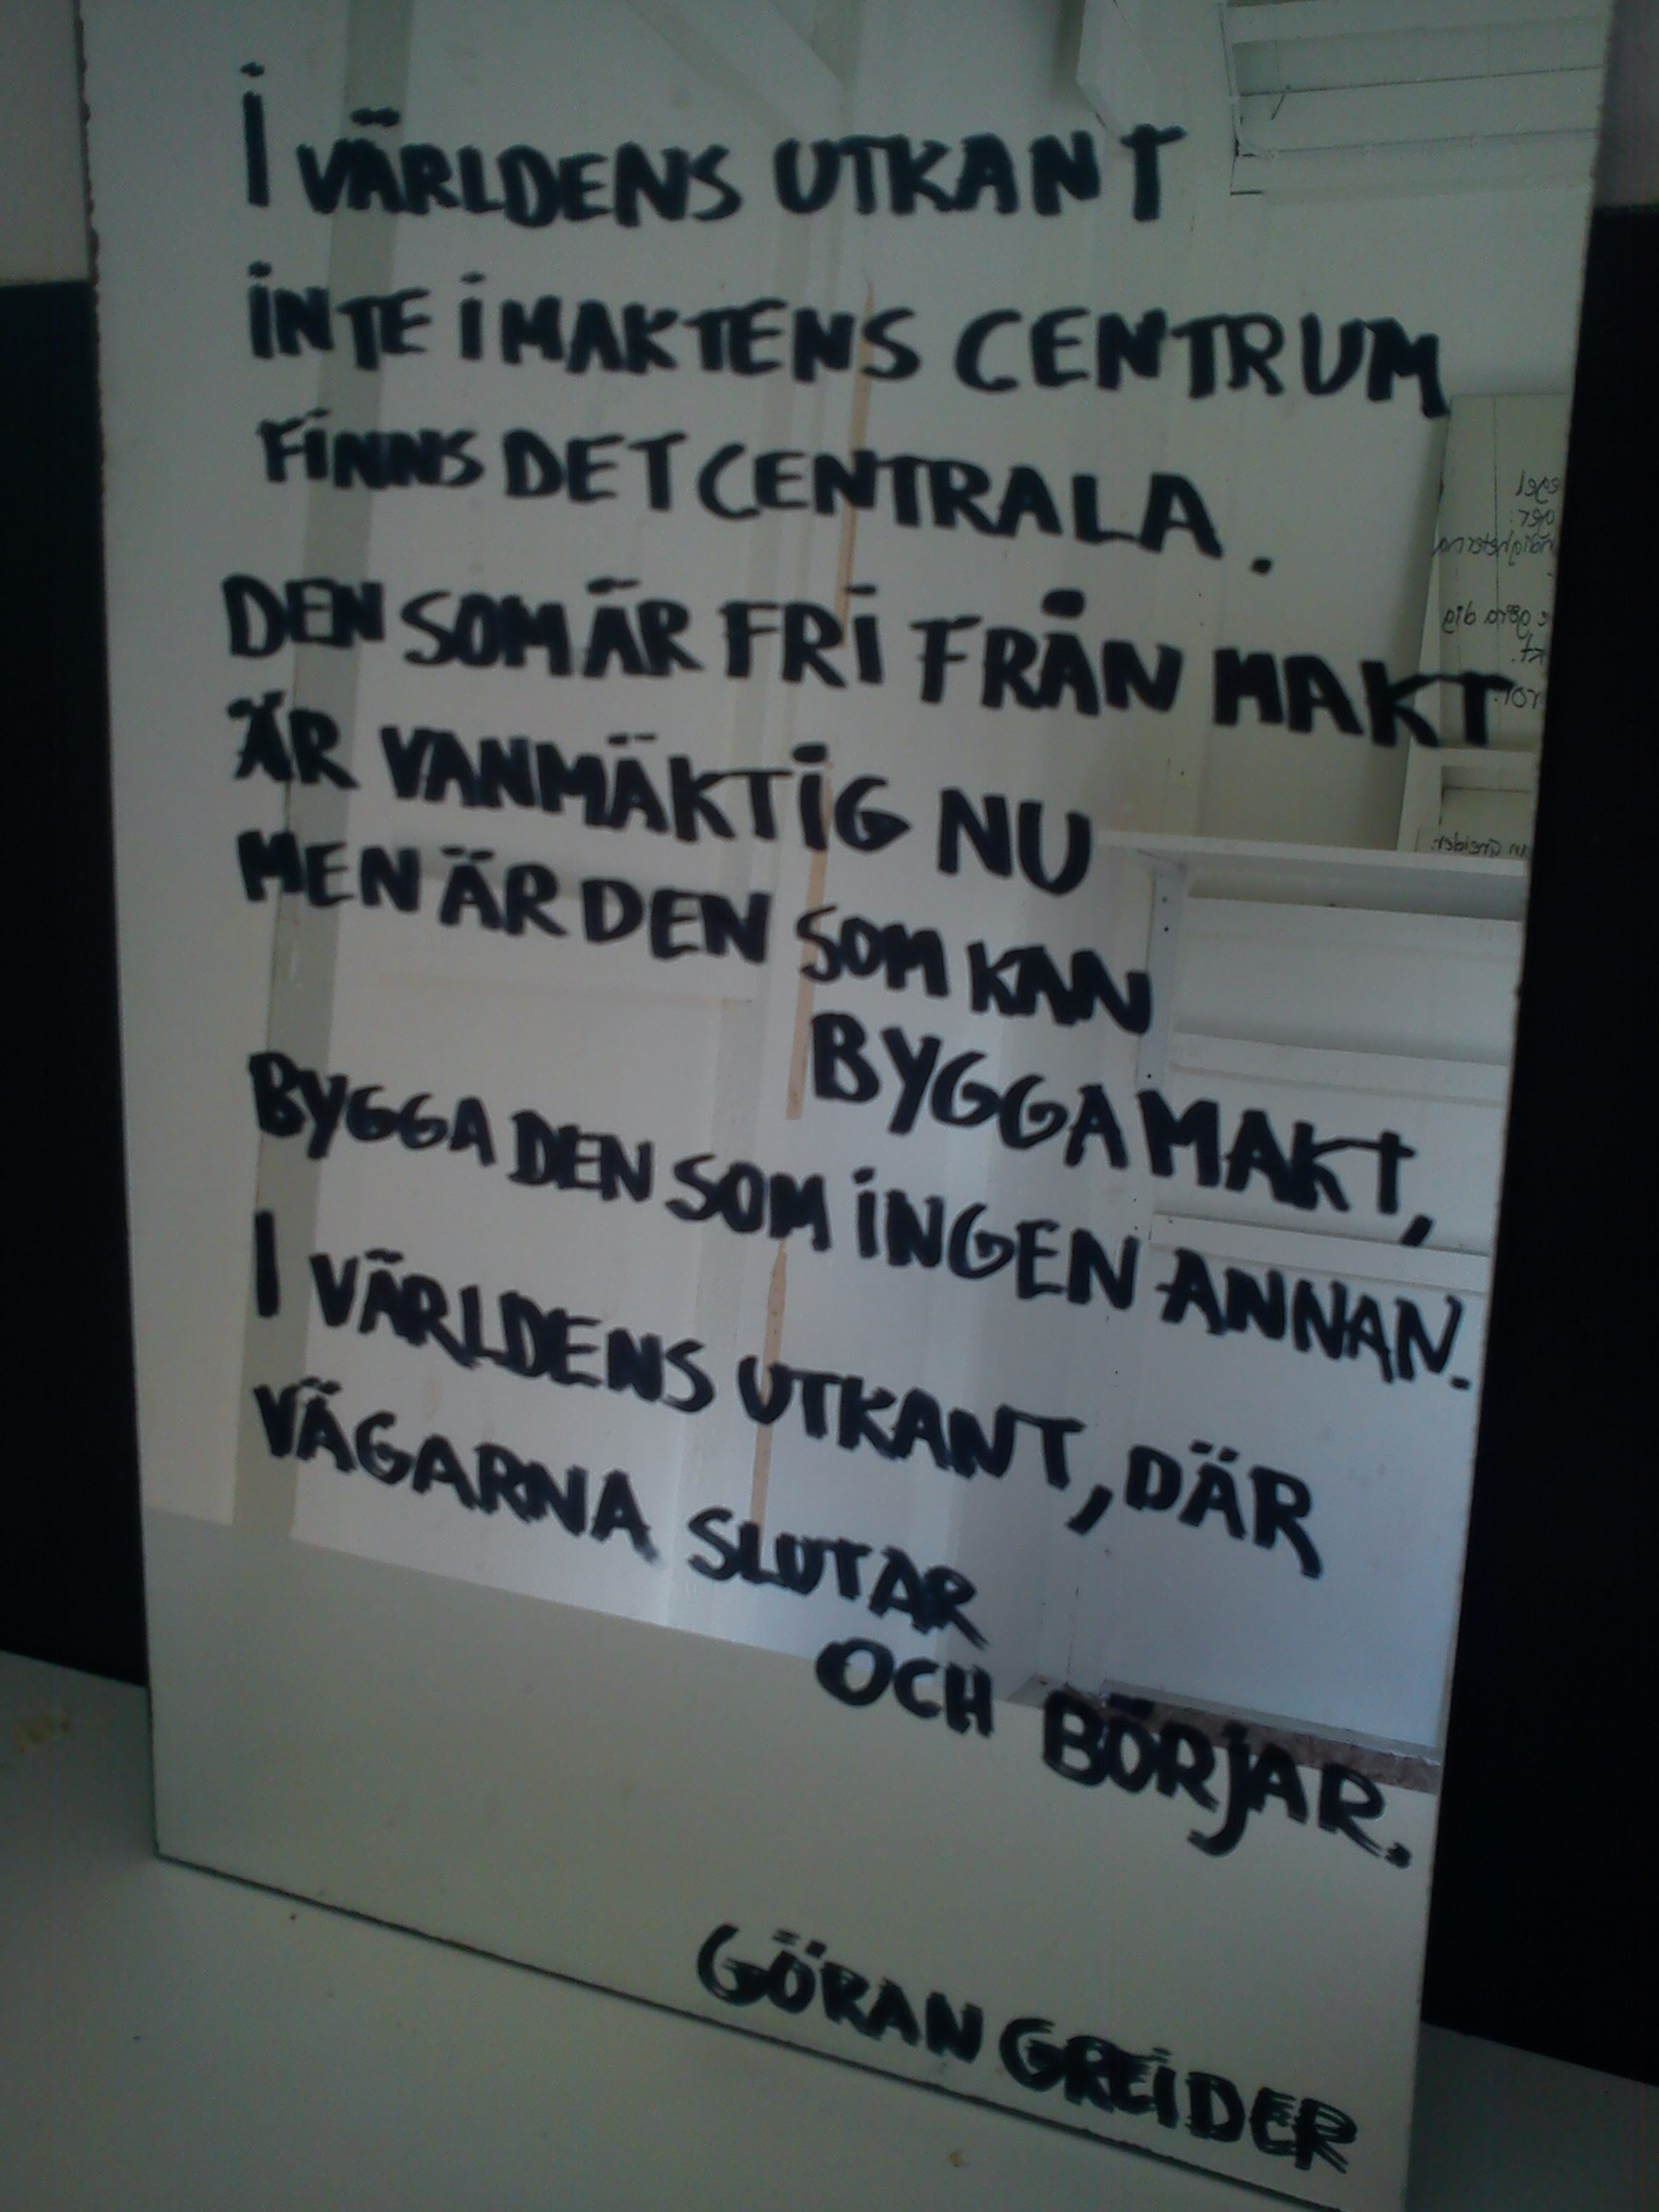 I VÄRLDENS UTKANT
INTE I MAKTENS CENTRUM
FINNS DET CENTRALA.
DEN SOM ÄR FRI FRÅN MAKT
ÄR VANMÄKTIG NU
MEN ÄR DEN SOM KAN
BYGGA MAKT,
BYGGA DEN SOM INGEN ANNAN.
I VÄRLDENS UTKANT, DÄR
VÄGARNA SLUTAR
OCH BÖRJAR.
GÖRAN GREIDER
göra dig
Greider.